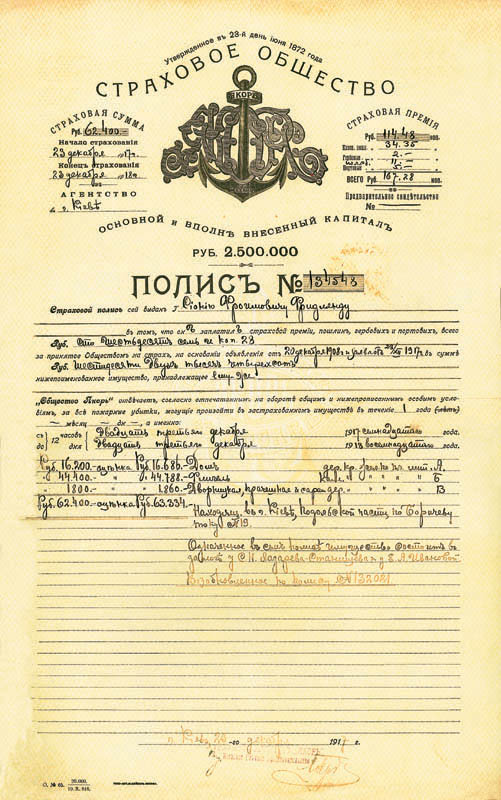 Утвержденное въ 23-й день іюня 1872 года
СТРАХОВОЕ ОБЩЕСТВО
ЯКОРЬ
СТРАХОВАЯ СУММА
Руб. 62.400.-
Начало страхованія
23 декабря 1917 г.
Конецъ страхованія
23 декабря 1918 г.
АГЕНТСТВО
въ г. Кіевѣ
СТРАХОВАЯ ПРЕМІЯ
Руб. 114.48 коп.
34.35
2.-
ВСЕГО Руб. 167.23 коп.
Предварительное свидѣтельство
№
ОСНОВНОЙ и ВПОЛНѢ ВНЕСЕННЫЙ КАПИТАЛЪ
РУБ. 2.500.000
ПОЛИСЪ № 134543
Страховой полисъ сей выданъ г.
въ томъ, что онъ заплатилъ страховой преміи, пошлинъ, гербовыхъ и портовыхъ, всего
Руб. сто шестьдесятъ семь и коп. 23
за принятое Обществомъ на страхъ, на основаніи объявленія отъ 20 декабря въ суммѣ
Руб. Шестидесяти двухъ тысячъ четырехсотъ
нижепоименованное имущество, принадлежащее ему же
„Общество Якорь" отвѣчаетъ, согласно отпечатаннымъ на оборотѣ общимъ и нижеприписаннымъ особымъ усло-
віямъ, за всѣ пожарные убытки, могущіе произойти въ застрахованномъ имуществѣ въ теченіе 1 года (лѣтъ)
— мѣсяц — дн — а именно:
съ 12 часовъ Двадцать третьяго декабря 1917 семнадцатаго
до дня Двадцать третьяго декабря 1918 восемнадцатаго
Руб. 16.200.-оцѣнка Руб. 16.686.- Домъ лит. А.
44.400.- " " 44.788.- Флигель " Б
1800.- " " 1.860.- " В
Руб. 62.400.-оцѣнка Руб. 63.334.-
Находящ. въ г. Кіевѣ, Подольской части по Боричеву
току № 19.
Означенное въ семъ полисѣ имущество состоитъ въ
Возобновленное по полису № 132021.
г. Кіевъ, 20-го декабря 1917 г.
О. № 65.